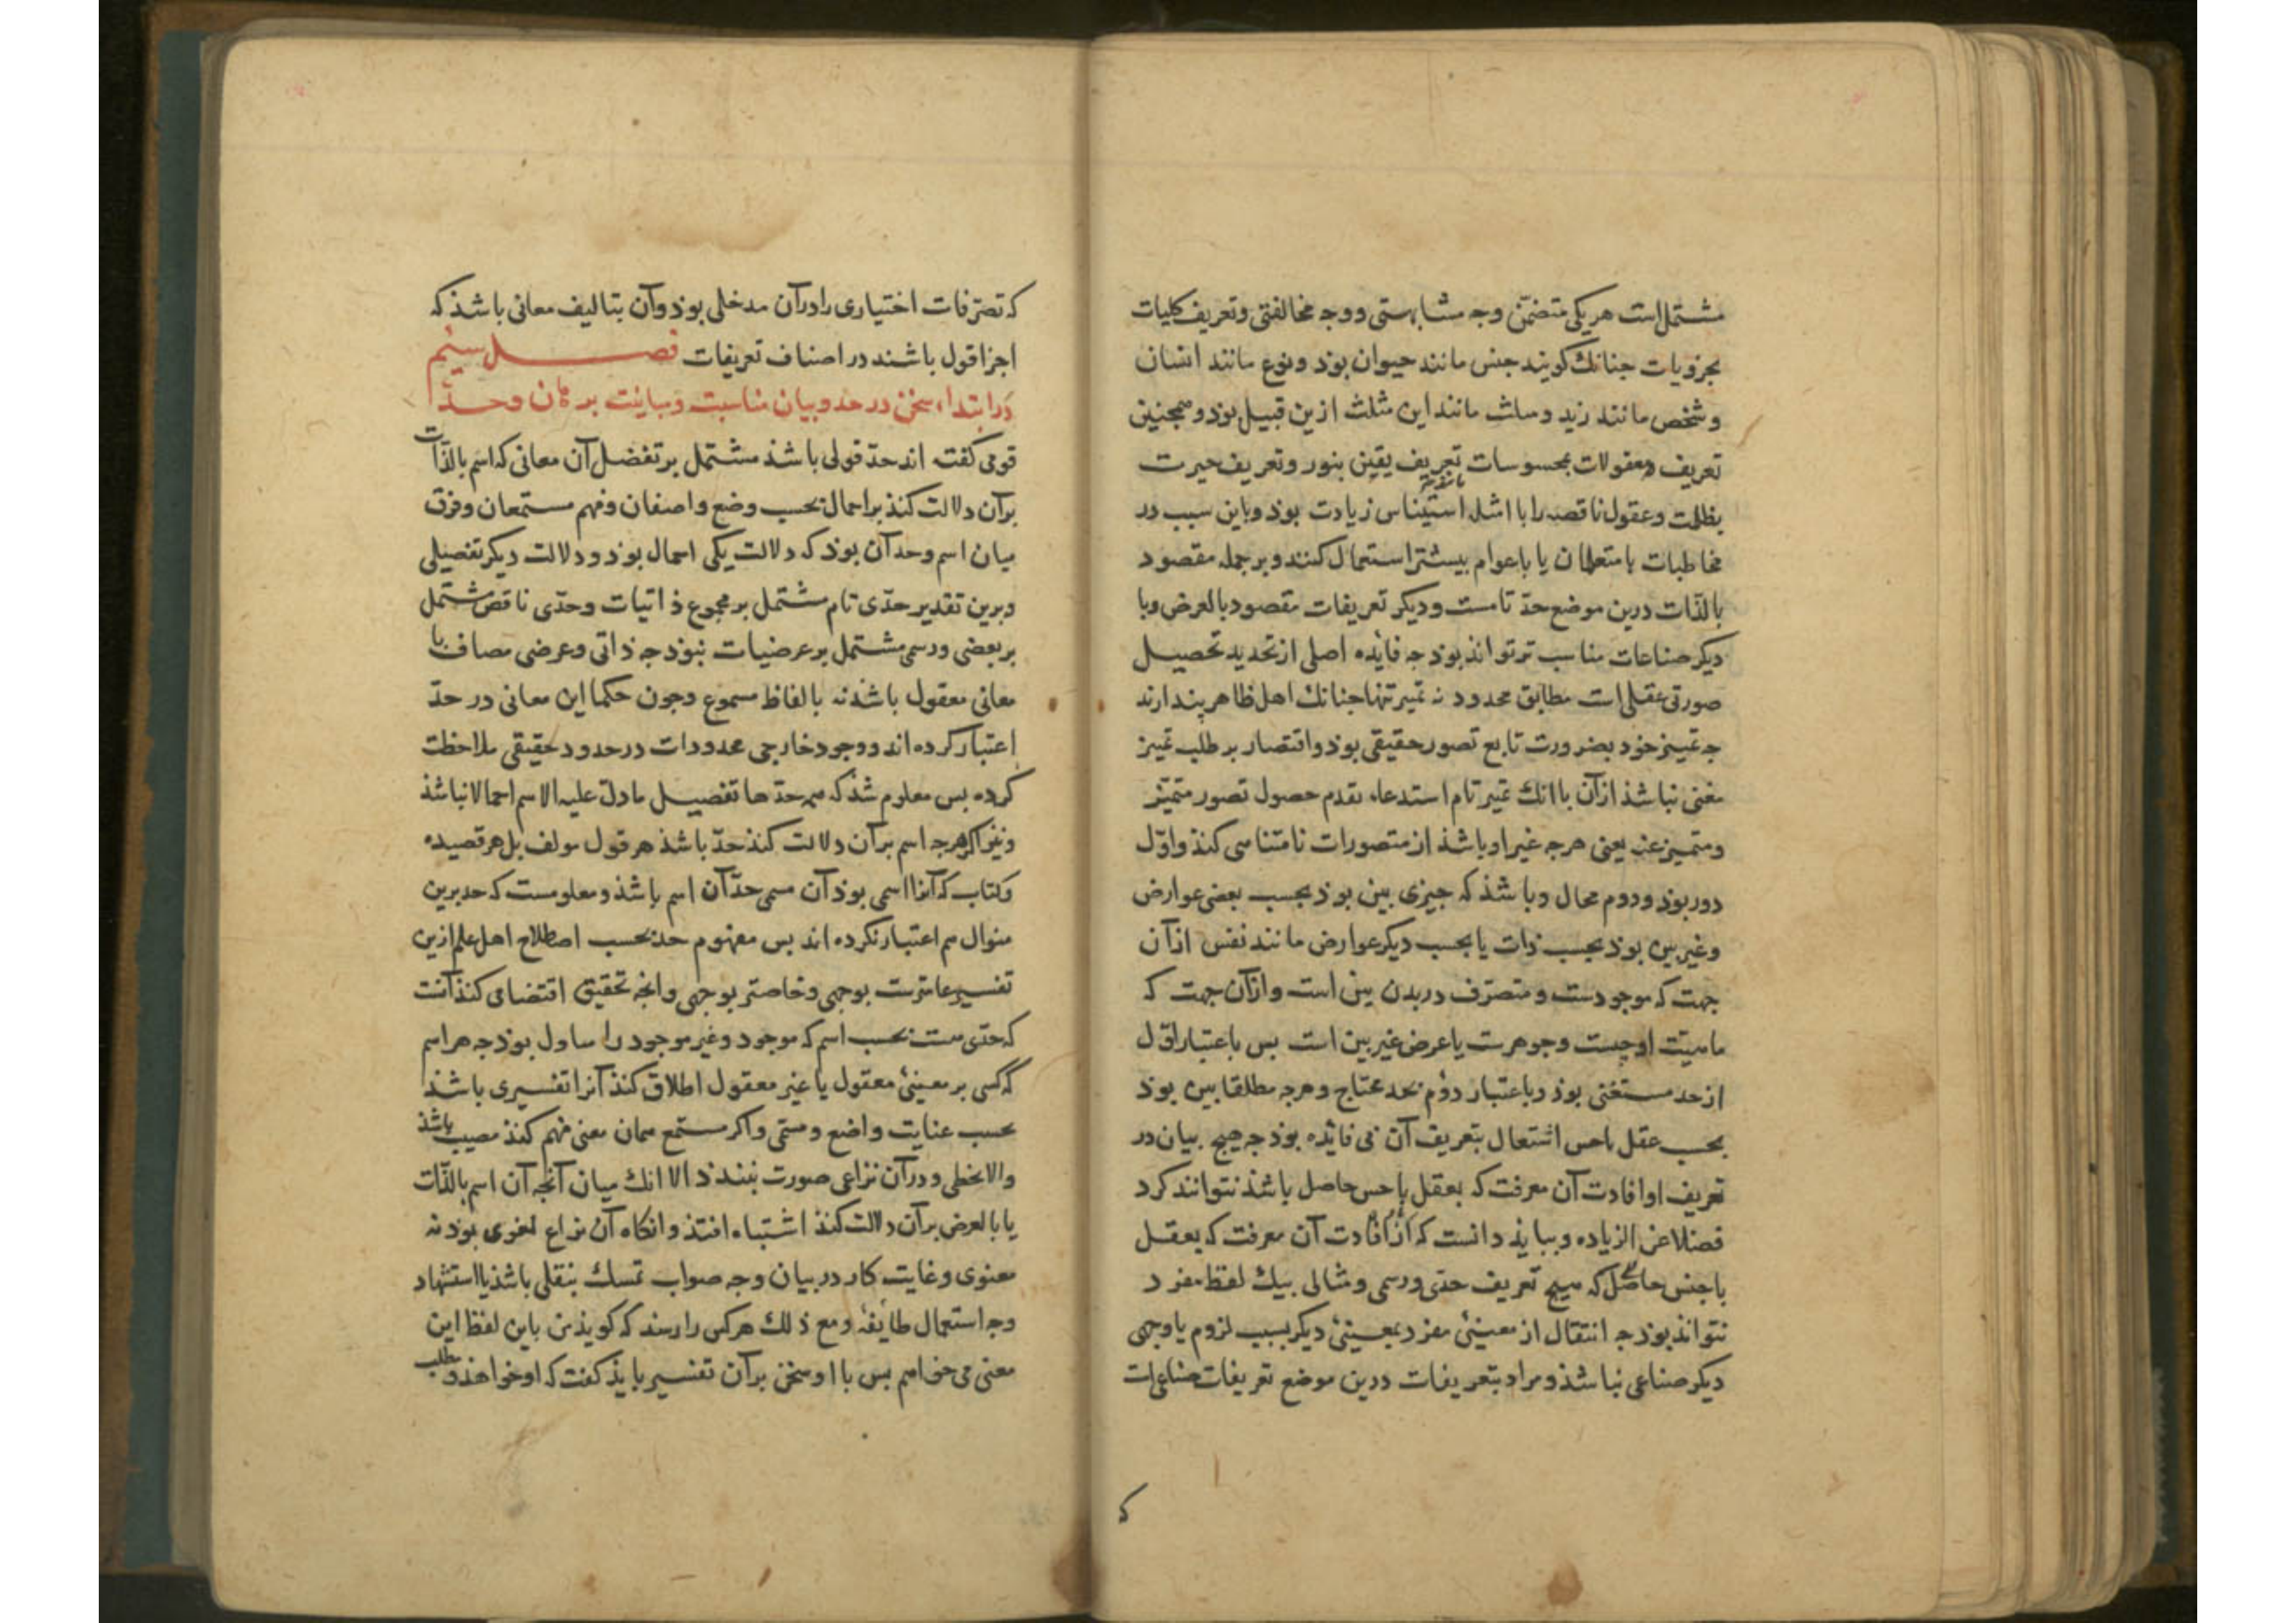 مشتمل است هر یکی متضمن وجه مشابهتی و وجه مخالفتی وتعریف کلیات
بجزویات جنانك کویند جنس مانند حیوان بوذ ونوع مانند انسان
و شخص مانند زید و مثلث مانند این مثلث ازین قبیل بوذ و همجنین
تعریف معقولات بمحسوسات تعریف یقین بنور وتعریف حیرت
بظلمت وعقول ناقصه را با امثله استیناس زیادت بوذ وباین سبب در
مخاطبات با متعلمان یا با عوام بیشتر استعمال کنند و بر جمله مقصود
بالذات درین موضع حدّ تامست و دیکر تعریفات مقصود بالعرض وبا
دیکر صناعات مناسب تر تواند بوذ جه فائده اصلی از تحدید تحصیل
صورتی عقلی است مطابق محدود نه تمیز تنها جنانك اهل ظاهر پندارند
جه تمییز خوذ بضرورت تابع تصور حقیقی بوذ واقتصار بر طلب تمیز
مغنی نباشذ از آن با انك تمیز تام استدعاء تقدم حصول تصور متمیّز
ومتمیز عنه یعنی هرجه غیر او باشذ از متصورات نامتناهی کنذ واوّل
دور بوذ ودوم محال وباشذ که جیزی بین بوذ بحسب بعضی عوارض
وغیر بین بوذ بحسب ذات یا بحسب دیکر عوارض مانند نفس از آن
جهت که موجودست و متصرّف در بدن بین است و از آن جهت که
ماهیّت او جیست وجوهرست یا عرض غیر بین است بس باعتبار اوّل
از حد مستغنی بوذ وباعتبار دوم بحد محتاج و هرجه مطلقا بین بوذ
بحسب عقل یا حس اشتعال بتعریف آن بی فائده بوذ جه هیج بیان در
تعریف او افادت آن معرفت که بعقل یا حس حاصل باشذ نتوانند کرد
فضلا عن الزیاده و ببایذ دانست که از افادت آن معرفت که بعقل
یا جنس حاصل که هیج تعریف حدّی ورسمی ومثالی بیك لفظ مفرد
نتواند بوذ جه انتقال از معینی مفرد بمعینی دیکر بسبب لزوم یا وجهی
دیکر صناعی نباشذ و مراد بتعریفات درین موضع تعریفات صناعی است
که
که تصرّفات اختیاری را در آن مدخلی بوذ وآن بتالیف معانی باشذ که
اجزا قول باشند در اصناف تعریفات فصل سیم
در ابتداء سخن در حد و بیان مناسبت ومباینت برهان وحدّ
قومی کفته اند حدّ قولی باشذ مشتمل بر تفضل آن معانی که اسم بالذّات
بر آن دلالت کنذ بر اجمال بحسب وضع واصفان وفهم مستمعان وفرق
میان اسم وحد آن بوذ که دلالت یکی اجمال بوذ و دلالت دیکر تفصیلی
وبرین تقدیر حدّی تام مشتمل بر مجموع ذاتیات وحدّی ناقص مشتمل
بر بعضی ورسمی مشتمل بر عرضیات نبوذ جه ذاتی وعرضی مضاف با
معانی معقول باشذ نه بالفاظ مسموع وجون حکما این معانی در حدّ
اعتبار کرده اند ووجود خارجی محدودات در حدود حقیقی ملاحظت
کرده بس معلوم شذ که همه حدّها تفصیل ما دلّ علیه الاسم اجمالا نباشذ
ونیز اکر هرجه اسم بر آن دلالت کنذ حدّ باشذ هر قول مولف بل هر قصیده
وکتاب که آنرا اسمی بوذ آن مسمی حدّ آن اسم باشذ و معلومست که حد برین
منوال هم اعتبار نکرده اند بس مفهوم حد بحسب اصطلاح اهل علم ازین
تفسیر عامترست بوجهی وخاصتر بوجهی وانجه تحقیق اقتضا می کنذ آنست
که حدّی هست بحسب اسم که موجود وغیر موجود را متناول بوذ جه هر اسم
که کسی بر معینی معقول یا غیر معقول اطلاق کنذ آنرا تفسیری باشذ
بحسب عنایت واضع ومسمّی واکر مستمع همان معنی فهم کنذ مصیب باشذ
والا مخطی و در آن نزاعی صورت نبندذ الا انك میان آنجه آن اسم بالذّات
یا بالعرض بر آن دلالت کنذ اشتباه افتذ وانکاه آن نزاع لغوی بوذ نه
معنوی وغایت کار در بیان وجه صواب تمسك بنقلی باشذ یا استشهاد
وجه استعمال طایفهٔ ومع ذلك هر کس را رسد که کویذ من باین لفظ این
معنی می خواهم بس با او سخن بر آن تفسیر بایذ کفت که او خواهذ و طلب